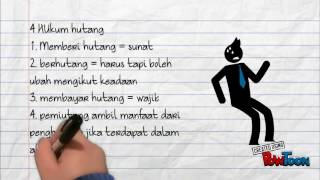 4 HUkum hutang
1. Memberi hutang = sunat
2. berhutang = harus tapi boleh
ubah mengikut keadaan
3. membayar hutang = wajib
4. pemiutang ambil manfaat dari
jika terdapat dalam
CREATED USING
POWTOON